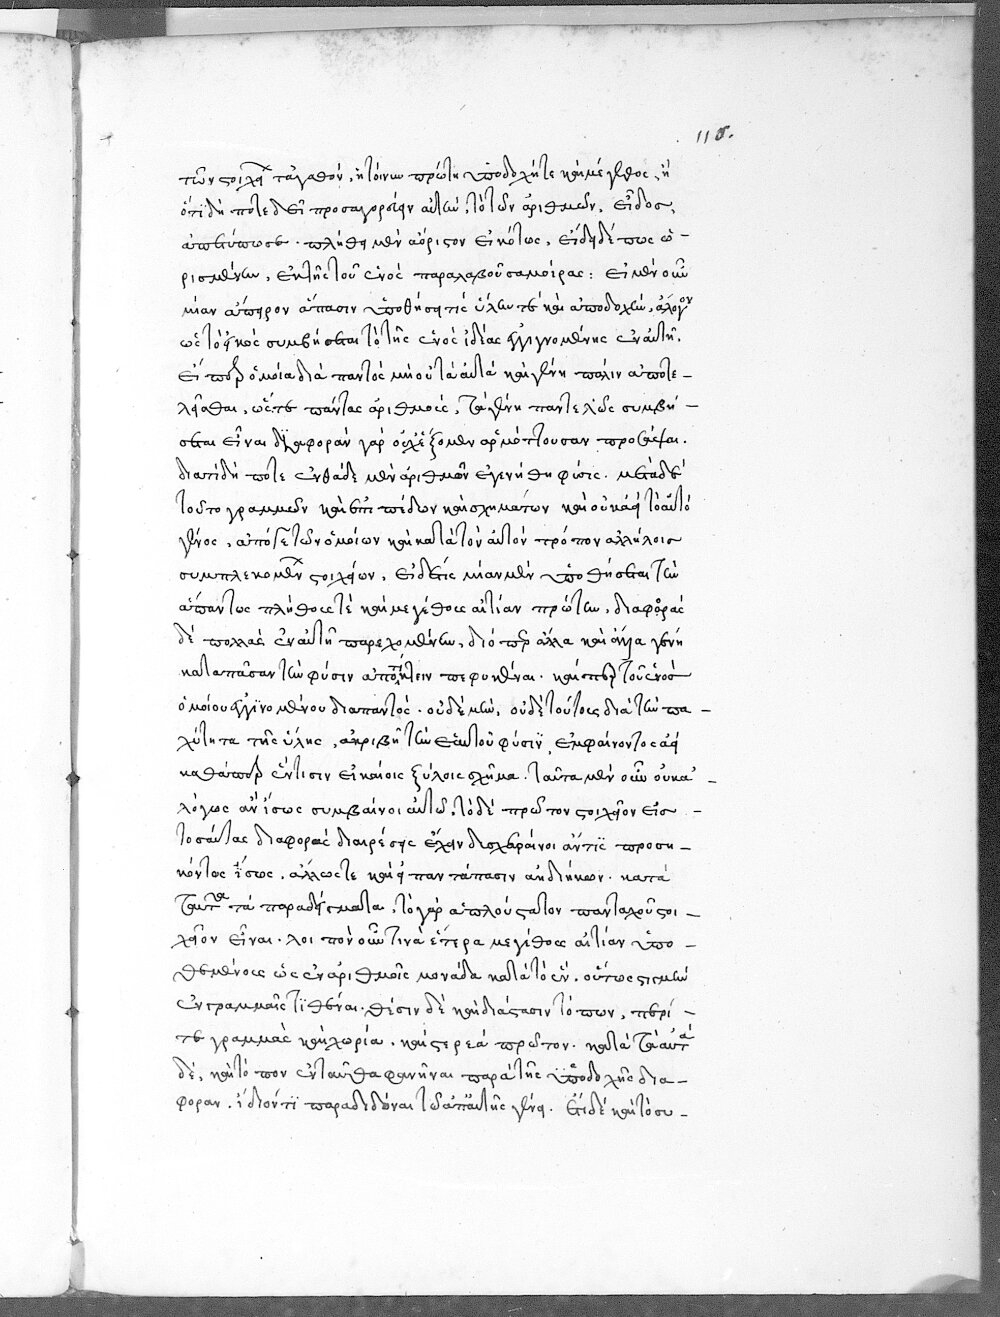 118.
τῶν στοιχεί τἀγαθόν, ἡ τοίνυν πρώτη ὑποδοχή τε καὶ μέγεθος, ἢ
ὅτι δή ποτε δεῖ προσαγορεύειν αὐτὴν, τὸ τῶν ἀριθμῶν, εἶδος,
ἀπετύπωσε. πλήθη μὲν ἀόριστον εἰκότως, εἴδη δέ πως ὡ-
ρισμένην, ἐκ τῆς τοῦ ἑνὸς παραλαβοῦσα μοίρας: εἰ μὲν οὖν
μίαν ἄπειρον ἅπασιν ὑποθήσῃ τίς ὕλην τὲ καὶ ἀποδοχὴν, ἄλογον
ὡς τὸ εἰκὸς συμβήσεται τὸ τῆς ἑνὸς ἰδέας ἐγγιγνομένης ἐν αὐτῇ.
εἴπερ ὁμοία διὰ παντὸς μὴ οὐ τὰ αὐτὰ καὶ γένη πάλιν ἀποτε-
λεῖσθαι, ὥστε πάντας ἀριθμοὺς, τὰ γένη παντελῶς συμβή-
σεται εἶναι διαφορὰν γὰρ οὐχ ἕξομεν ἁρμόττουσαν προσάψαι.
διατιδή ποτε ἐνθάδε μὲν ἀριθμῶν ἐγεννήθη φύσις. μετὰ δὲ
τοῦτο γραμμῶν καὶ ἐπιπέδων καὶ σχημάτων καὶ οὐκ ἀεὶ τὸ αὐτὸ
γένος, ἀπό γε τῶν ὁμοίων καὶ κατὰ τὸν αὐτὸν τρόπον ἀλλήλοις
συμπλεκομεν στοιχείων, εἰ δέ τις μίαν μὲν ὑποθήσεται τὴν
ἅπαντος πλήθους τὲ καὶ μεγέθους αἰτίαν πρώτην, διαφορὰς
δὲ πολλὰς ἐν αὐτῇ παρεχομένην, διόπερ ἄλλα καὶ ἄλλα γένη
κατὰ πᾶσαν τὴν φύσιν ἀποτίκτειν πεφυκέναι. καίπερ τοῦ ἑνὸς
ὁμοίου ἐγγινομένου διαπαντὸς. οὐδὲ μὴν, οὐδὲ τούτοις διὰ τὴν πα-
χύτητα τῆς ὕλης, ἀκριβῆ τὴν ἑαυτοῦ φύσιν ἐμφαίνοντος ἀεὶ
καθάπερ ἔν τισιν εἰκαίοις ξύλοις σχῆμα. ταῦτα μὲν οὖν οὐκ ἀ-
λόγως ἂν ἴσως συμβαίνοι αὐτῷ, τὸ δὲ πρῶτον στοιχεῖον εἰς
τοσαύτας διαφορὰς διαιρέσεις ἔχειν δυσχεραίνοι ἄν τις προση-
κόντως ἴσως, ἄλλως τε καὶ εἰ παντάπασιν ἀηδικήκων. κατὰ
ταῦτα τὰ παραδείγματα, τὸ γὰρ ἁπλούστατον πανταχοῦ στοι-
χεῖον εἶναι. λοιπὸν οὖν τινὰ ἑτέρα μεγέθους αἰτίαν ὑπο-
θεμένους ὡς ἐν ἀριθμοῖς μονάδα κατὰ τὸ ἓν. οὕτως στιγμὴν
ἐν γραμμαῖς τιθέναι. θέσιν δὲ καὶ διάστασιν τόπων, περί
τε γραμμὰς καὶ χωρία. καὶ στερεὰ πρῶτον. κατὰ ταὐτὰ
δὲ, καὶ τόπον ἐνταῦθα φανῆναι παρὰ τῆς ὑποδοχῆς δια-
φορὰν. ἴδιόν τι παραδιδόναι τῷ ἀπ᾽ αὐτῆς γένει. εἰ δὲ καὶ τὸ συ-